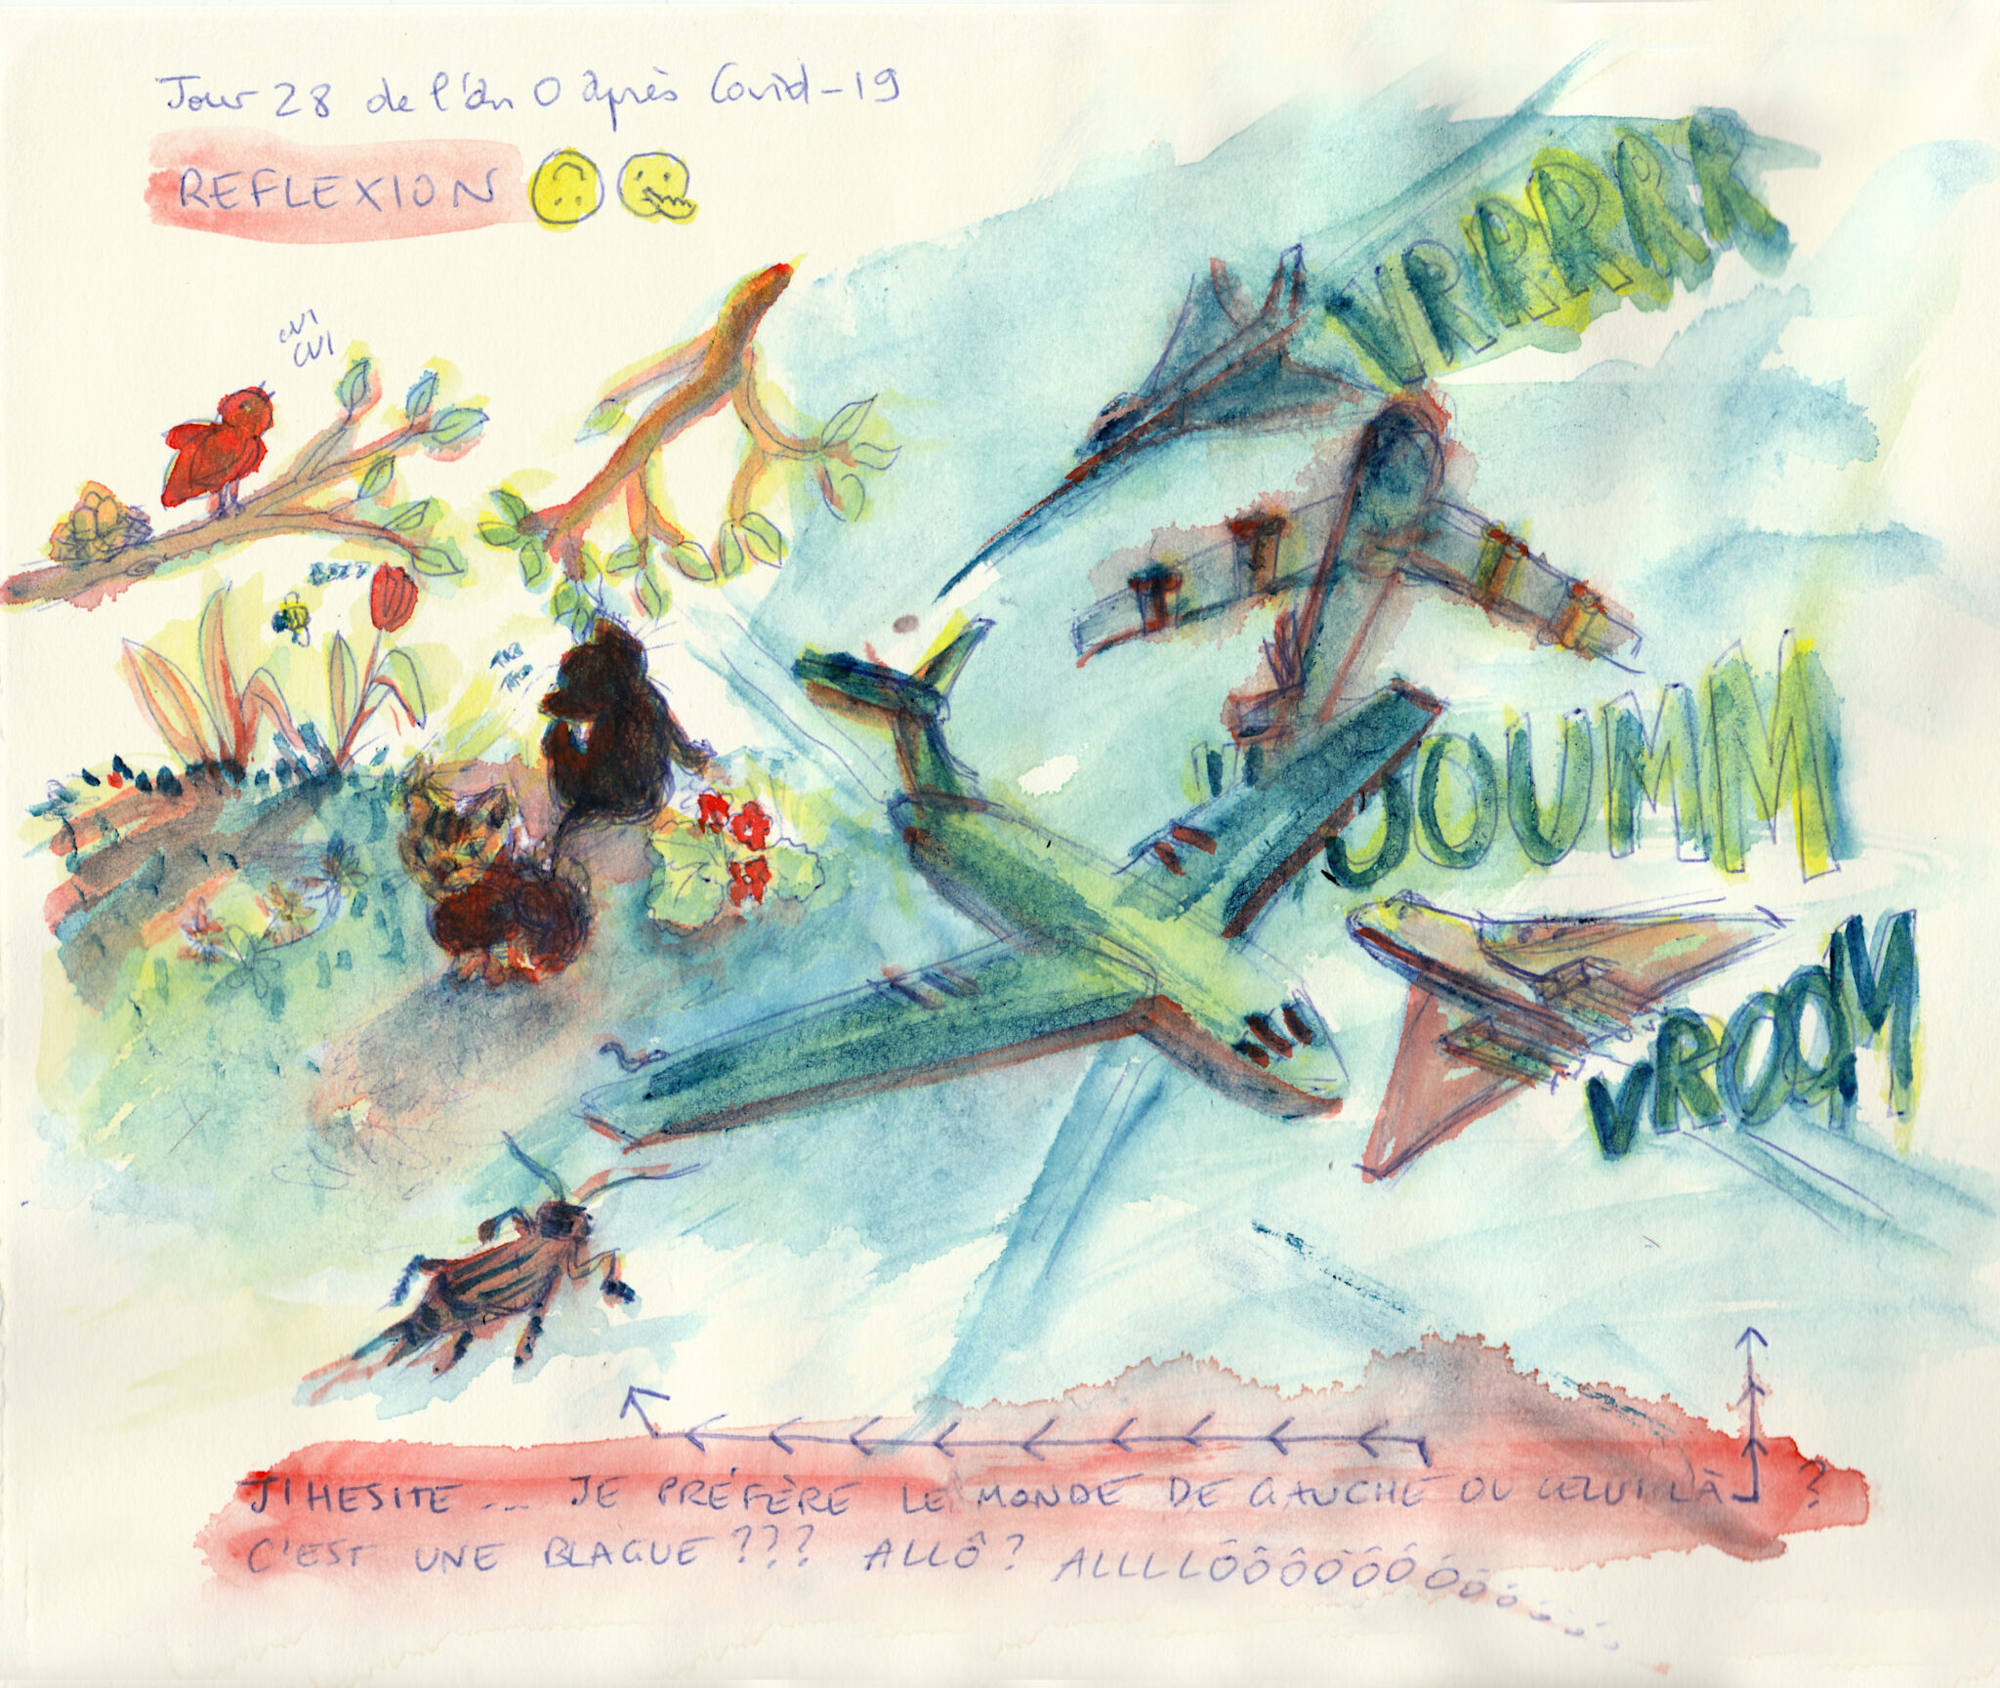 Jour 28 de l'an 0 après Covid-19
REFLEXION
CUI
CUI
BZZZ
VRRRRRR
JOUMM
VROOM
J'HESITE... JE PRÉFÈRE LE MONDE DE GAUCHE OU CELUI LÀ ?
C'EST UNE BLAGUE??? ALLÔ? ALLLLÔÔÔÔÔÔÔÔÔÔÔ